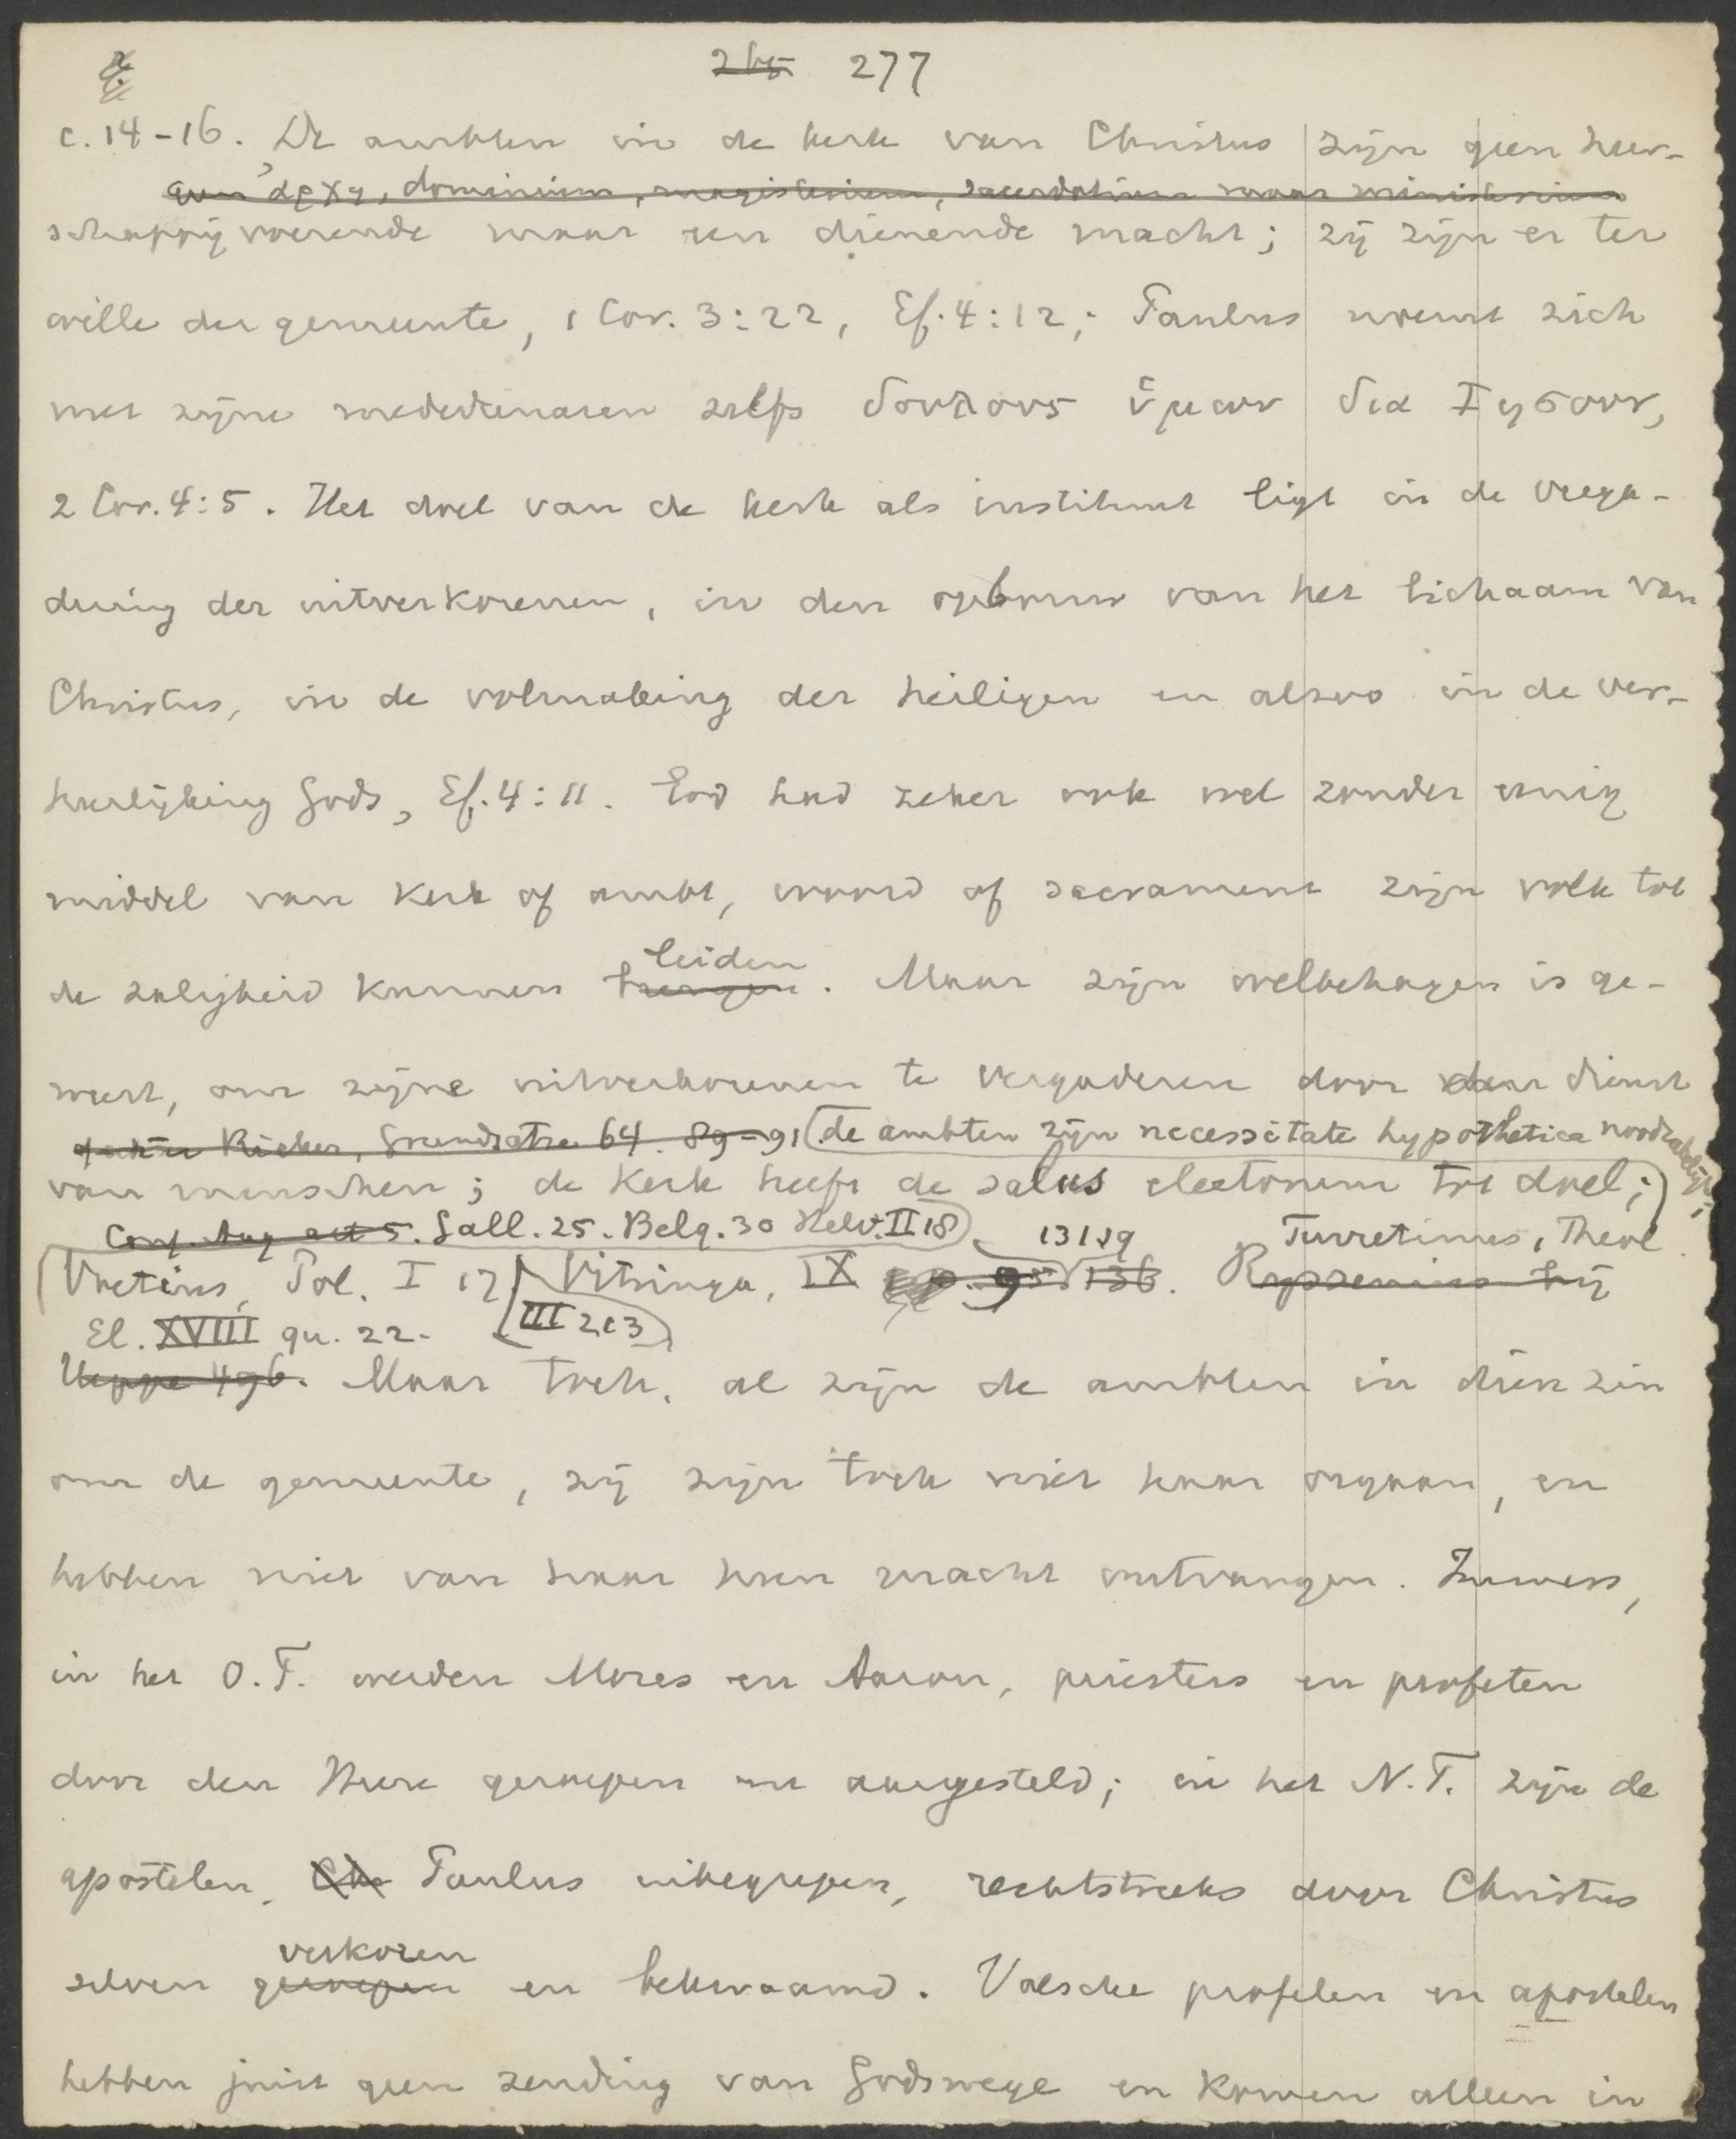 265 277
c. 14-16. De ambten in de kerk van Christus zijn geen heer-
geen ἀρχη, dominium, magisterium, sacerdotium maar ministerium
schappijvoerende maar een dienende macht; zij zijn er ter
wille der gemeente, 1 Cor. 3:22, Ef. 4:12; Paulus noemt zich
met zijne mededienaren zelfs δουλους ὑμων δια Ἰησουν,
2 Cor. 4:5. Het doel van de kerk als instituut ligt in de verga-
dering der uitverkorenen, in den opbouw van het lichaam van
Christus, in de volmaking der heiligen en alzoo in de ver-
heerlijking Gods, Ef. 4:11. God had zeker ook wel zonder eenig
middel van kerk of ambt, woord of sacrament zijn volk tot
leiden
de zaligheid kunnen brengen. Maar zijn welbehagen is ge-
weest, om zijne uitverkorenen te vergaderen door den dienst
Rieker, Grundsätze 64. 89-91 de ambten zijn necessitate hypothetica noodzakelijk;
van menschen; de kerk heeft de salus electorum tot doel;
Conf. Aug. art 5. Gall. 25. Belg. 30 Helv. II 18 131.19 Turretinus, Theol.
Voetius, Pol. I 17 Vitringa, IX p. 95 136. Ryssenius bij
El. XVIII qu. 22. III 213
Heppe 496. Maar toch, al zijn de ambten in dien zin
om de gemeente, zij zijn toch niet haar orgaan, en
hebben niet van haar hun macht ontvangen. Immers,
in het O.T. werden Mozes en Aaron, priesters en profeten
door den Heere geroepen en aangesteld; in het N.T. zijn de
apostelen, Chr Paulus inbegrepen, rechtstreeks door Christus
verkoren
zelven geroepen en bekwaamd. Valsche profeten en apostelen
hebben juist geen zending van Godswege en komen alleen in